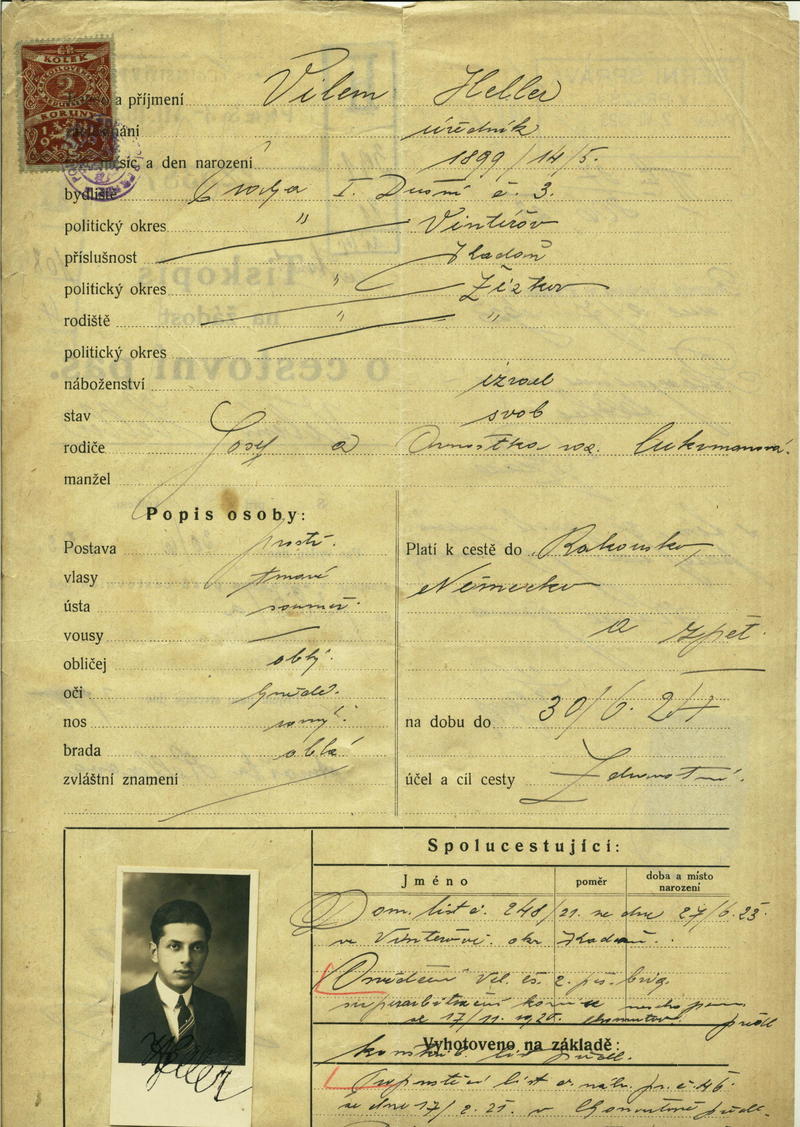 KOLEK
2
KORUNY
a příjmení Vilém Heller
úředník
měsíc a den narození 1899/14/5.
bydliště Praha I. Dušní č. 3.
politický okres " Vinteřov
příslušnost Kadaň
politický okres " Žižkov
rodiště " "
politický okres
náboženství izrael
stav svob
rodiče Josef a Arnoštka roz.
manžel
Popis osoby:
Postava prostř.
vlasy tmavé
ústa souměr.
vousy —
obličej oblý.
oči hnědé.
nos rovný.
brada oblá
zvláštní znamení
Platí k cestě do Rakouska,
Německa
a zpět.
na dobu do 30/6. 24
účel a cíl cesty
Spolucestující:
Jméno poměr doba a místo narození
Dom. list č. 248/21. ze dne 27/6. 23.
ve Vinteřově. okr. Kadaň.
Osvědčení vel. čs. 2. pěš. brig.
superarbitrační komise
ze 17/11. 1920. předl
Vyhotoveno na základě:
list předl.
Propouštěcí list
ze dne 17/2. 21. v Chomutově předl.
Heller